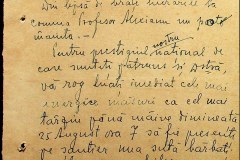 Din lipsă de brațe lucrările la
comuna Profesor Miceanu nu pot
înainta...
Pentru prestigiul nostru național de
care sunteți pătruns și D-stră,
vă rog luați imediat cele mai
energice măsuri ca cel mai
târziu până mâine dimineață
25 August ora 7 să fie prezenți
pe șantier una sută bărbați